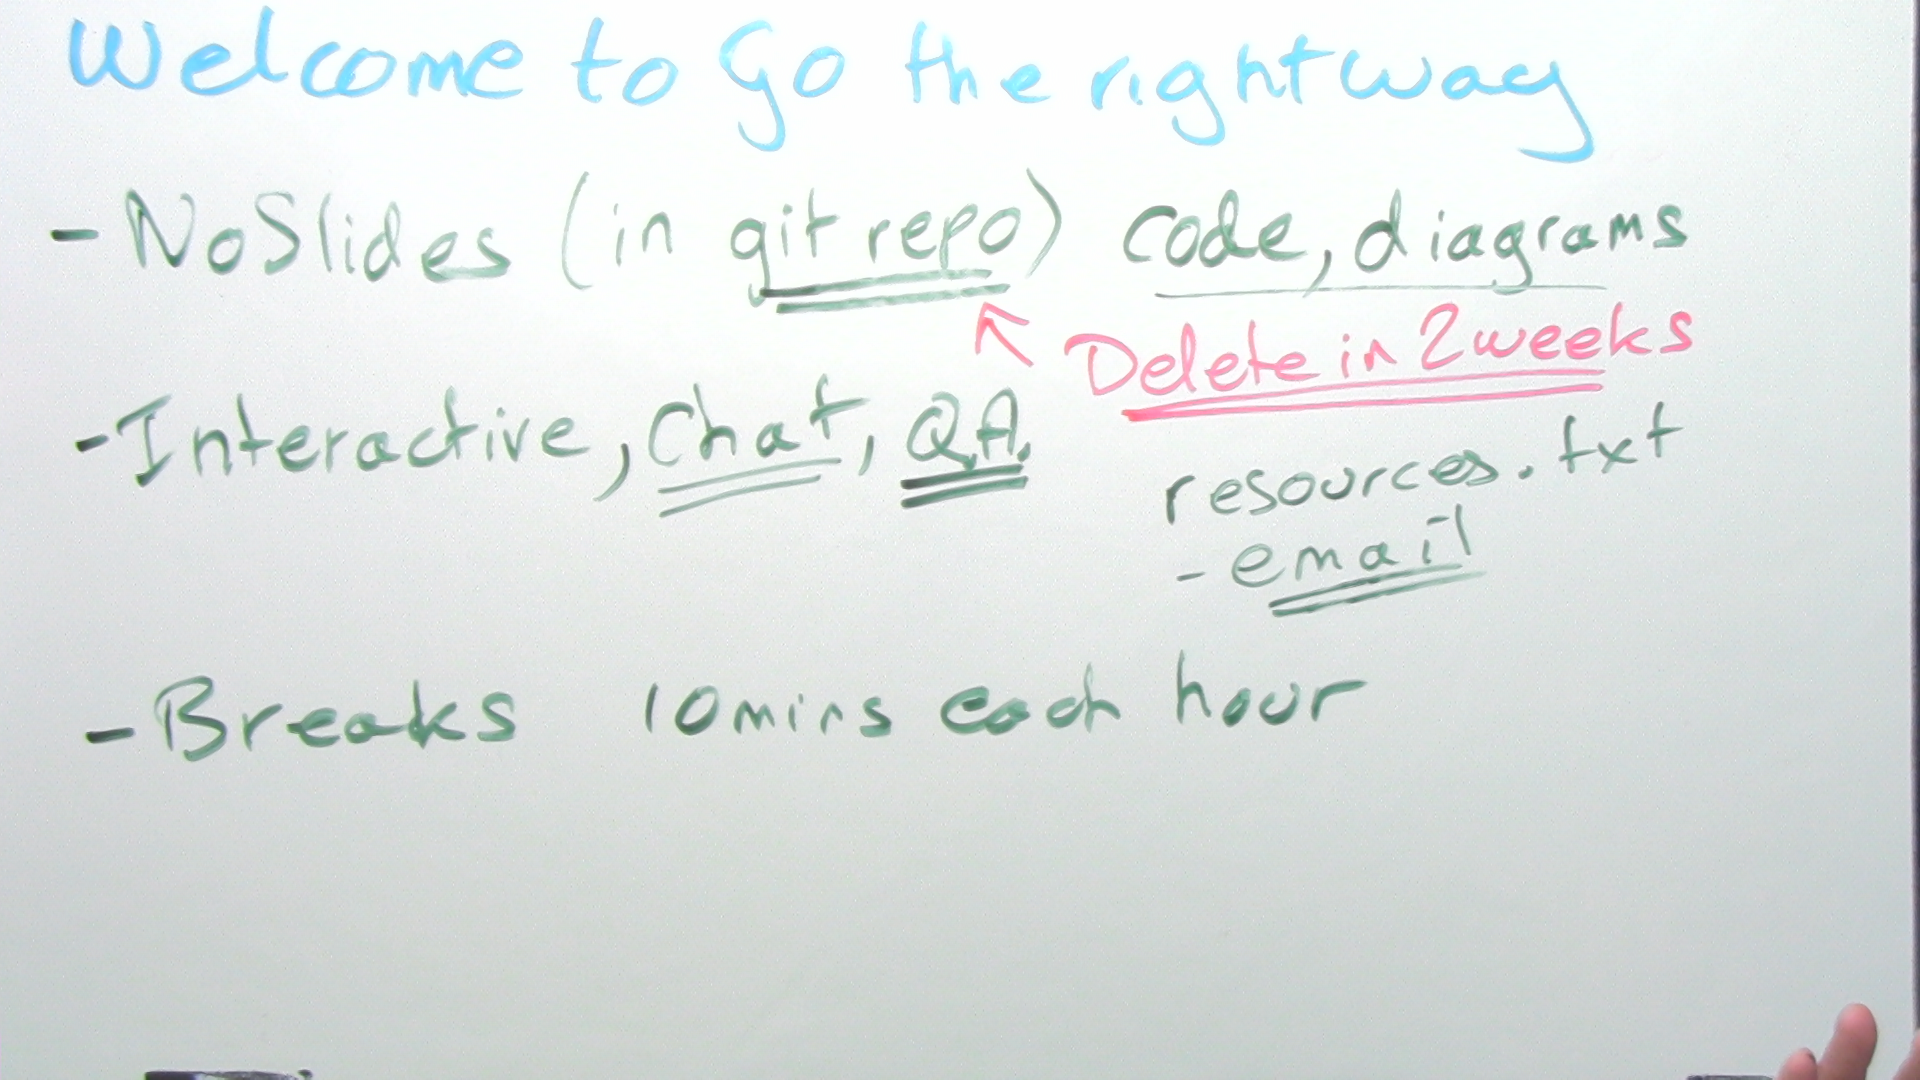 Welcome to Go the right way
- No Slides (in git repo) code, diagrams
Delete in 2 weeks
- Interactive, Chat, Q.A.
resources.txt
- email
- Breaks 10 mins each hour